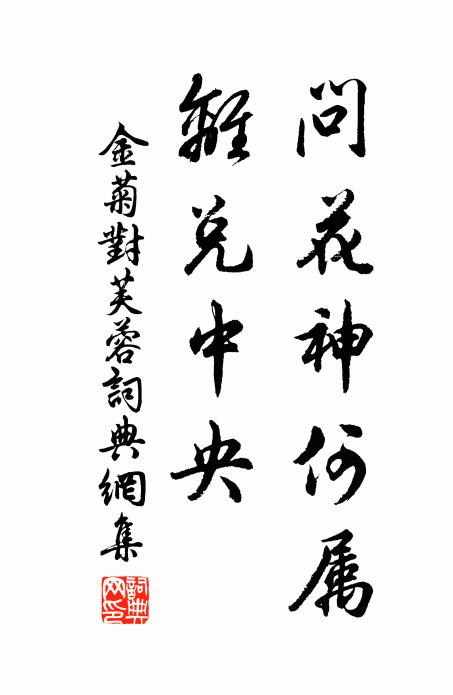 問花神何属
離兑中央
金菊對芙蓉詞典網集
詞典网印